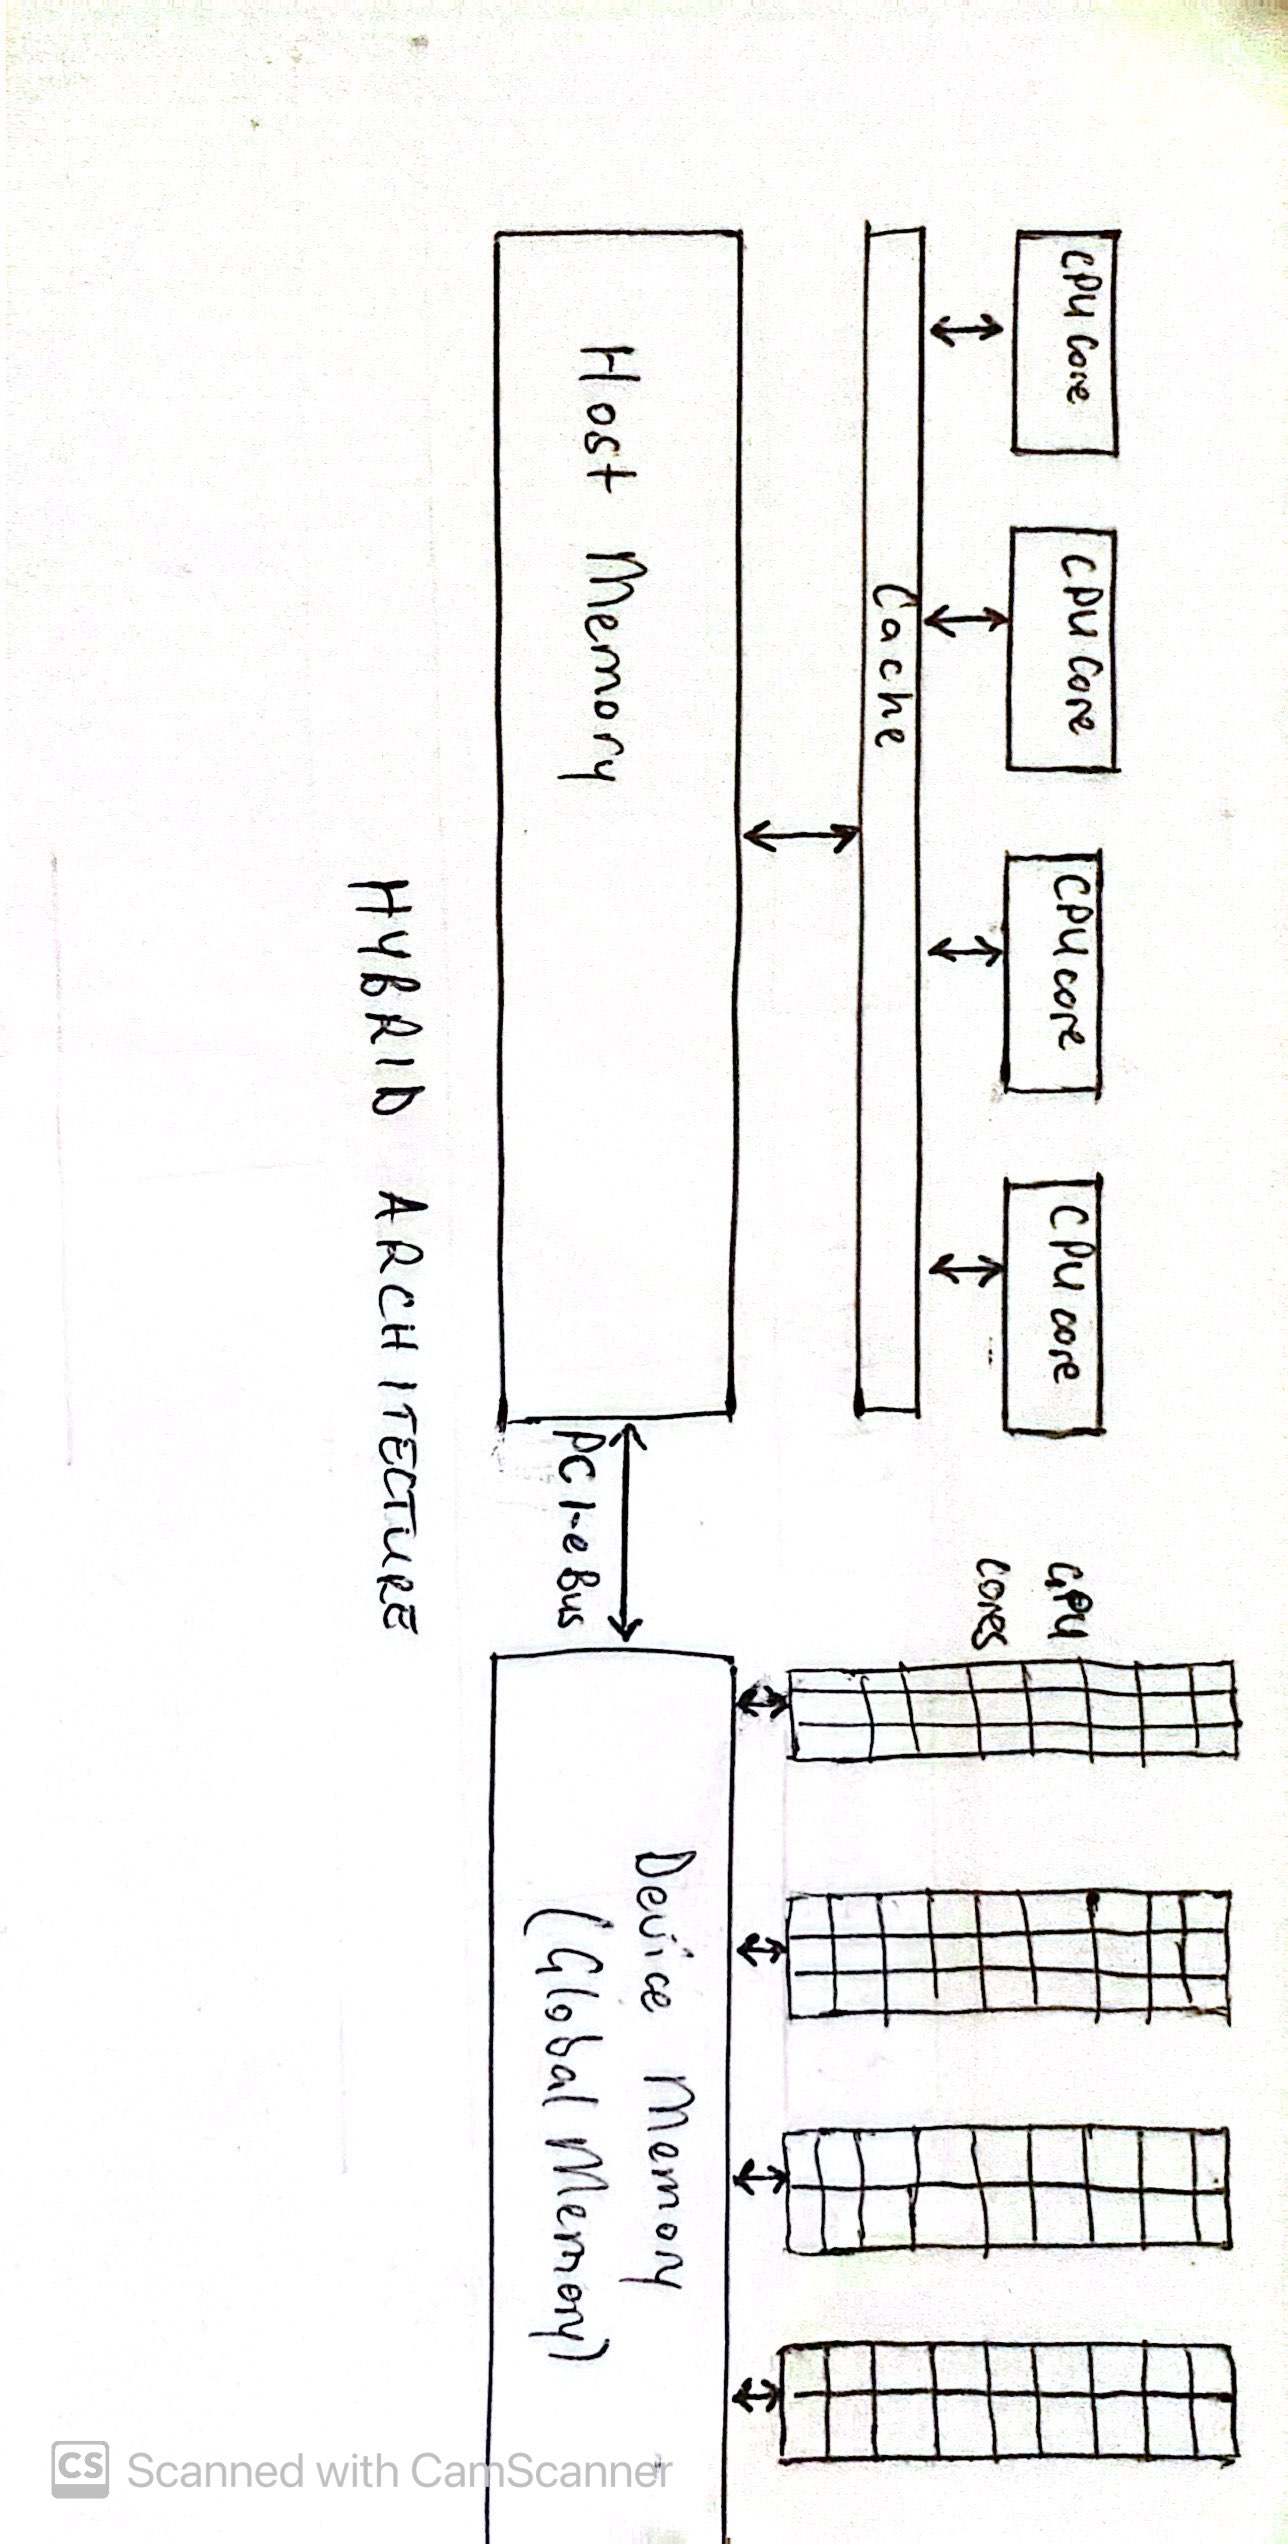 CPU core
CPU core
CPU core
CPU core
Cache
GPU
cores
Host Memory
PCI-e Bus
Device Memory
(Global Memory)
HYBRID ARCHITECTURE
CS Scanned with CamScanner